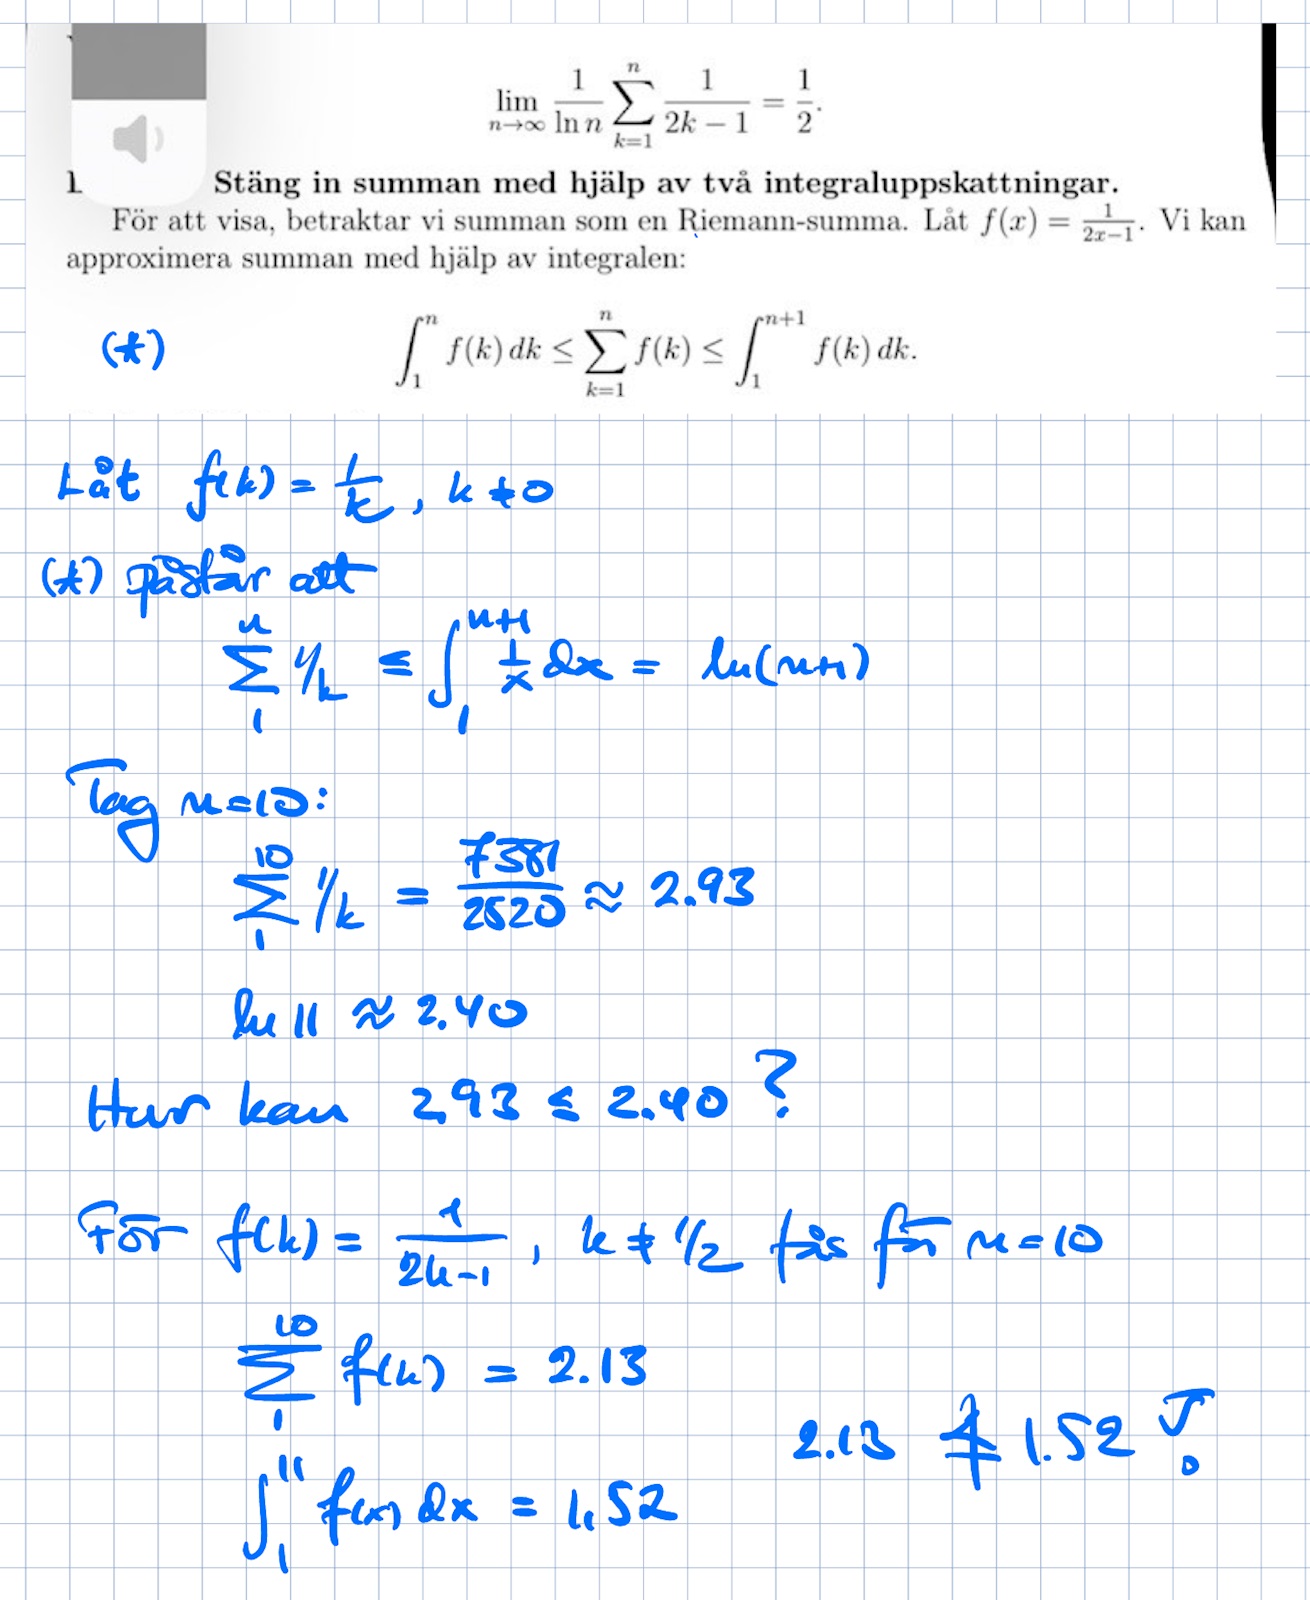 lim_{n→∞} 1/ln n ∑_{k=1}^{n} 1/(2k − 1) = 1/2.
Stäng in summan med hjälp av två integraluppskattningar.
För att visa, betraktar vi summan som en Riemann-summa. Låt f(x) = 1/(2x−1). Vi kan
approximera summan med hjälp av integralen:
(*) ∫_1^n f(k) dk ≤ ∑_{k=1}^{n} f(k) ≤ ∫_1^{n+1} f(k) dk.
Låt f(k) = 1/k, k ≠ 0
(*) påstår att
∑_1^n 1/k ≤ ∫_1^{n+1} 1/x dx = ln(n+1)
Tag n=10:
∑_1^10 1/k = 7381/2520 ≈ 2.93
ln 11 ≈ 2.40
Hur kan 2,93 ≤ 2.40 ?
För f(k) = 1/(2k-1), k ≠ 1/2 fås för n=10
∑_1^10 f(k) = 2.13
2.13 ≰ 1.52 !
∫_1^11 f(x) dx = 1,52